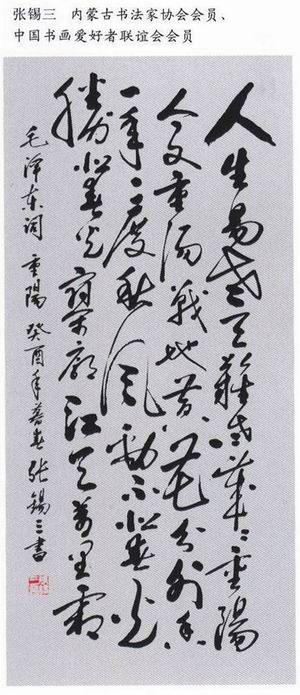 张锡三 内蒙古书法家协会会员、
中国书画爱好者联谊会会员
人生易老天難老歲歲重陽
今又重陽戰地黄花分外香
一年一度秋风劲不似春光
勝似春光寥廓江天萬里霜
毛泽东词 重陽 癸酉年暮春 张锡三書